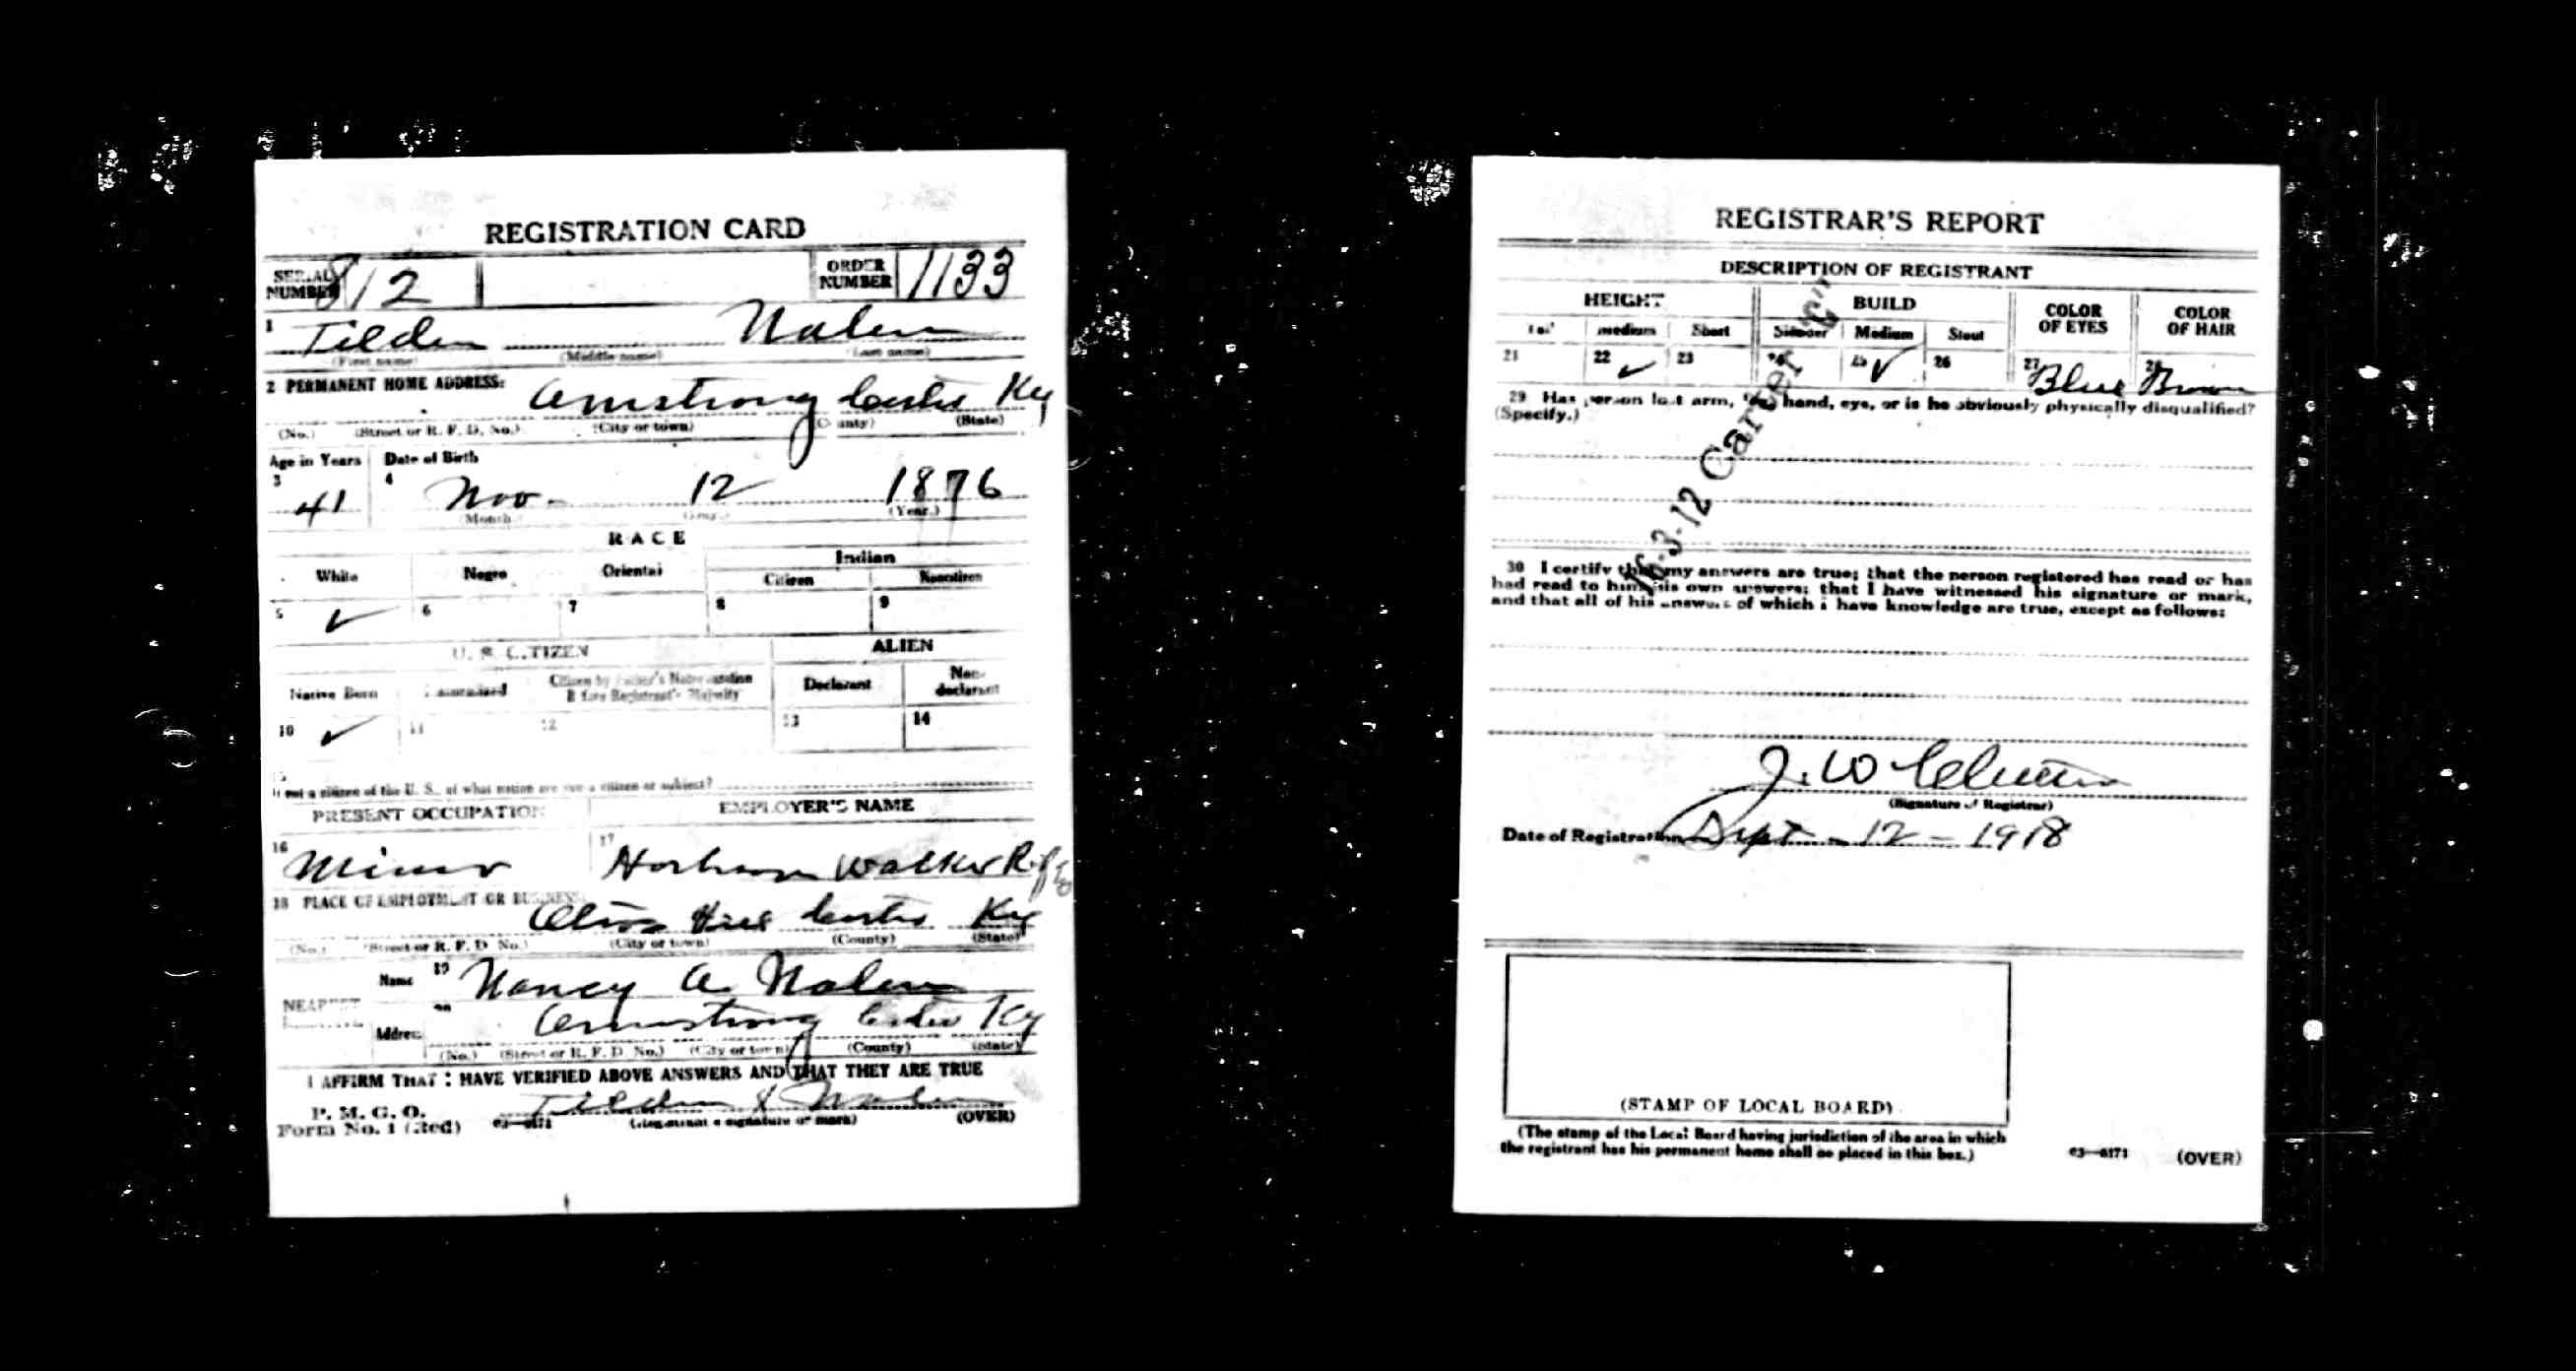 REGISTRATION CARD
SERIAL NUMBER 812 ORDER NUMBER 1133
1 Tilden Nolen
(First name) (Middle name) (Last name)
2 PERMANENT HOME ADDRESS:
Armstrong Carter Ky
(No.) (Street or R. F. D. No.) (City or town) (County) (State)
Age in Years Date of Birth
3 41 4 Nov. 12 1876
(Month) (Day) (Year.)
RACE
White Negro Oriental Indian
Citizen Noncitizen
5 ✓ 6 7 8 9
U. S. CITIZEN ALIEN
Native Born Naturalized Citizen by Father's Naturalization Before Registrant's Majority Declarant Non-declarant
10 ✓ 11 12 13 14
15
If not a citizen of the U. S., of what nation are you a citizen or subject?
PRESENT OCCUPATION EMPLOYER'S NAME
16 Miner 17 Walker
18 PLACE OF EMPLOYMENT OR BUSINESS:
Olive Hill Carter Ky
(No.) (Street or R. F. D. No.) (City or town) (County) (State)
NEAREST
Name 19 Nancy A. Nolen
Address 20 Armstrong Carter Ky
(No.) (Street or R. F. D. No.) (City or town) (County) (State)
I AFFIRM THAT I HAVE VERIFIED ABOVE ANSWERS AND THAT THEY ARE TRUE
P. M. G. O.
Form No. 1 (Red) 03—6171 Tilden X Nolen
(Registrant's signature or mark) (OVER)
REGISTRAR'S REPORT
DESCRIPTION OF REGISTRANT
HEIGHT BUILD COLOR OF EYES COLOR OF HAIR
Tall medium Short Slender Medium Stout
21 22 ✓ 23 24 25 ✓ 26 27 Blue 28 Brown
29 Has person lost arm, leg, hand, eye, or is he obviously physically disqualified?
(Specify.)
16-3-12 Carter "C"
30 I certify that my answers are true; that the person registered has read or has
had read to him his own answers; that I have witnessed his signature or mark,
and that all of his answers of which I have knowledge are true, except as follows:
J. W.
(Signature of Registrar)
Date of Registration Sept - 12 - 1918
(STAMP OF LOCAL BOARD)
(The stamp of the Local Board having jurisdiction of the area in which
the registrant has his permanent home shall be placed in this box.)
03—6171 (OVER)